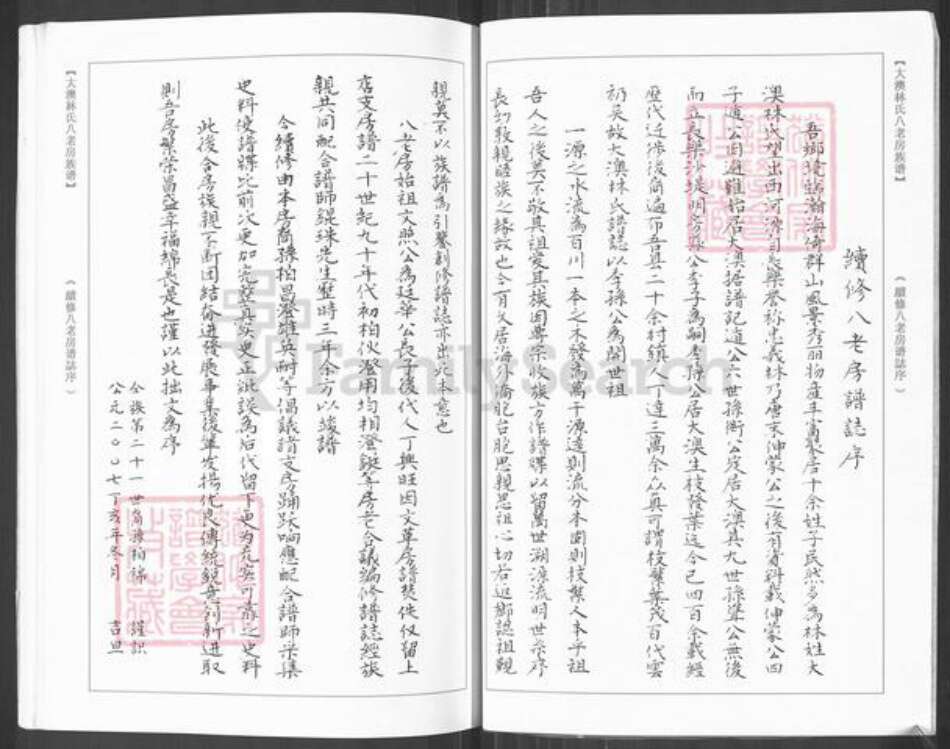 【大澳林氏八老房族谱】
《續修八老房谱誌序》
續修八老房譜誌序
吾鄉境臨瀚海倚群山風景秀丽物產丰富聚居十余姓子民然多為林姓大
澳林氏望出西河源司長樂譽称忠義林乃唐末仲蒙公之後有資料載仲蒙公四
子道公因避難始居大澳据譜記道公六世孫衛公定居大澳其九世孫肇公無後
而立長樂沙堤明亮孫公季子為嗣居大澳生枝發葉迄今已四百余載經
歷代迁徙後裔遍布五县二十余村鎮人丁達三萬余众真可謂枝繁葉茂百代雲
礽吴故大澳林氏譜誌以李孫公為開世祖
一源之水流為百川一本之木發為萬干源遠則流分本固則枝繁人本乎祖
吾人之後莫不敬其祖愛其族因尊宗收族方作譜牒以留萬世溯源流明世系序
長幼敦親睦族之緣故也今有久居海外僑胞台胞思親思祖心切若返鄉認祖覲
親莫不以族譜為引鑒創修譜誌亦出此本意也
八老房始祖文照公為廷華公長子後代人丁興旺因文革房譜焚佚仅留上
店支房譜二十世紀九十年代初柏伙澄用均相澄鋌等房老合議编修譜誌經族
親共同配合譜師錕珠先生歷時三年余方以竣譜
今續修由本房裔孫柏昌澄雄英耐等倡議諸支房踊跃响應配合譜師采集
史料使譜牒比前次更加完整真致更正訛誤為后代留下更为充实可靠之史料
此後合房族親不断团结奋進發展事業後輩发揚优良傳統銳意创新进取
則吾房繁荣昌盛幸福綿長是也謹以此拙文為序
仝族第二十一世裔孫柏錦 謹識
公元二〇〇七丁亥年冬月 吉旦
【大澳林氏八老房族谱】
《續修八老房谱誌序》
FamilySearch